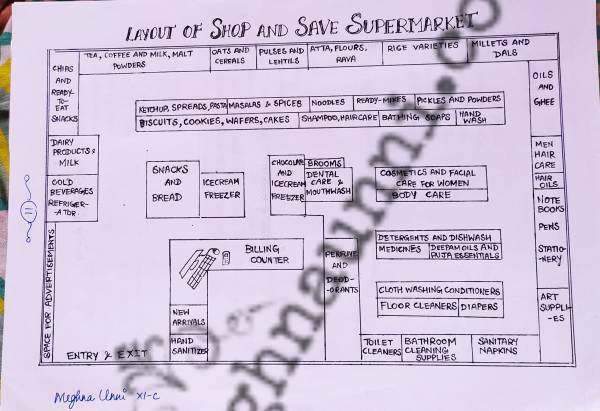 LAYOUT OF SHOP AND SAVE SUPERMARKET
CHIPS
AND
READY-
TO-
EAT
SNACKS
TEA, COFFEE AND MILK, MALT
POWDERS
OATS AND
CEREALS
PULSES AND
LENTILS
ATTA, FLOURS,
RAVA
RICE VARIETIES
MILLETS AND
DALS
OILS
AND
GHEE
KETCHUP, SPREADS, PASTA
MASALAS & SPICES
NOODLES
READY-MIXES
PICKLES AND POWDERS
BISCUITS, COOKIES, WAFERS, CAKES
SHAMPOO, HAIRCARE
BATHING SOAPS
HAND
WASH
DAIRY
PRODUCTS &
MILK
COLD
BEVERAGES
REFRIGER-
ATOR
SNACKS
AND
BREAD
ICECREAM
FREEZER
CHOCOLATE
AND
ICECREAM
FREEZER
BROOMS
DENTAL
CARE &
MOUTHWASH
COSMETICS AND FACIAL
CARE FOR WOMEN
BODY CARE
MEN
HAIR
CARE
HAIR
OILS
NOTE
BOOKS
PENS
STATIO-
NERY
ART
SUPPLI-
ES
11
SPACE FOR ADVERTISEMENTS
BILLING
COUNTER
PERFUME
AND
DEOD-
ORANTS
DETERGENTS AND DISHWASH
MEDICINES
DEEPAM OILS AND
PUJA ESSENTIALS
CLOTH WASHING CONDITIONERS
FLOOR CLEANERS
DIAPERS
NEW
ARRIVALS
HAND
SANITIZER
ENTRY & EXIT
TOILET
CLEANERS
BATHROOM
CLEANING
SUPPLIES
SANITARY
NAPKINS
Meghna Unni XI-C